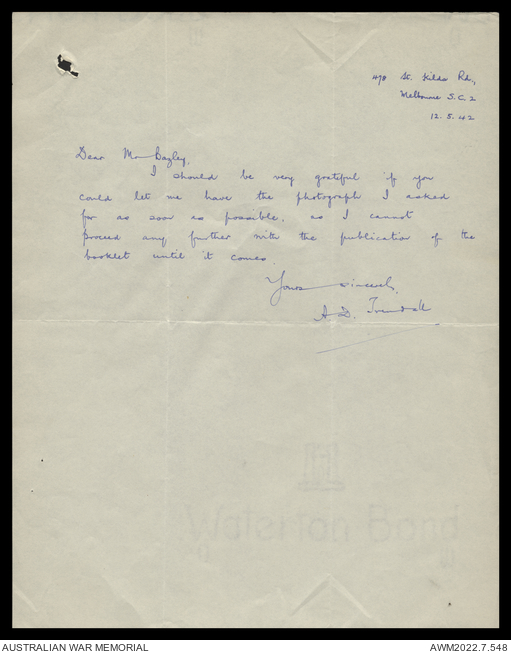 478 St. Kilda Rd.,
Melbourne S.C.2
12.5.42
Dear Mr Bagley,
I should be very grateful if you
could let me have the photograph I asked
for as soon as possible, as I cannot
proceed any further with the publication of the
booklet until it comes.
Yours sincerely,
A D. Trendall
Waterton Bond
AUSTRALIAN WAR MEMORIAL
AWM2022.7.548